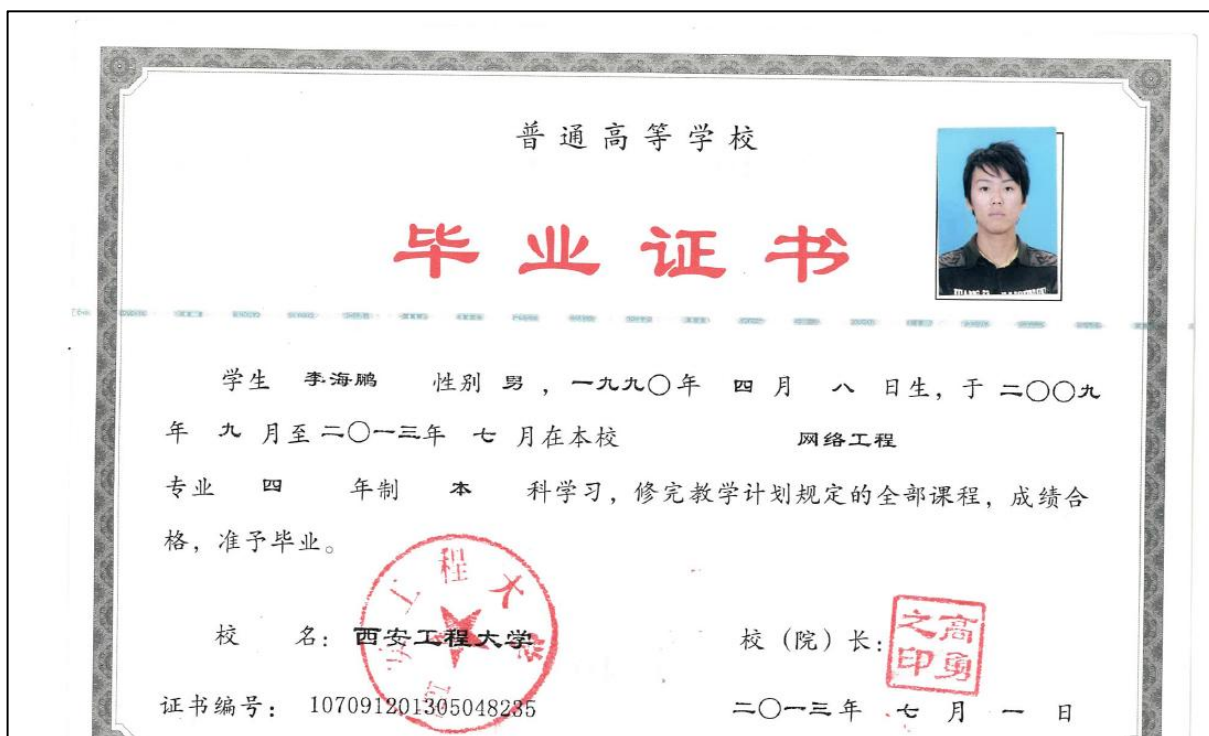 普通高等学校
毕业证书
学生 李海鹏 性别 男，一九九〇年 四 月 八 日生，于 二〇〇九
年 九 月至 二〇一三年 七 月在本校 网络工程
专业 四 年制 本 科学习，修完教学计划规定的全部课程，成绩合
格，准予毕业。
校 名：西安工程大学
西安工程大学
校（院）长：
高勇之印
证书编号：107091201305048235
二〇一三年 七 月 一 日